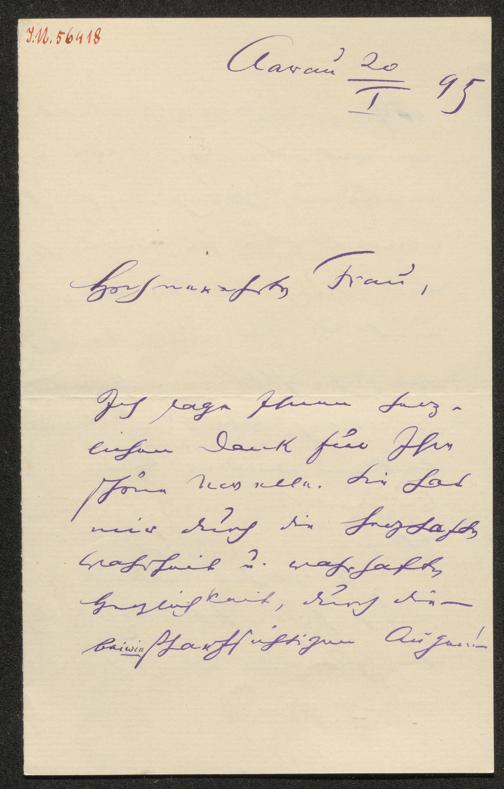 J.N. 56418
Aarau 20/I 95
Hochverehrte Frau,
Ich sage Ihnen herz-
lichen Dank für Ihre
schöne Novelle. Sie hat
mir durch die herzhafte
Wahrheit u. wahrhafte
Herzlichkeit, durch die
scharfsichtigen Augen